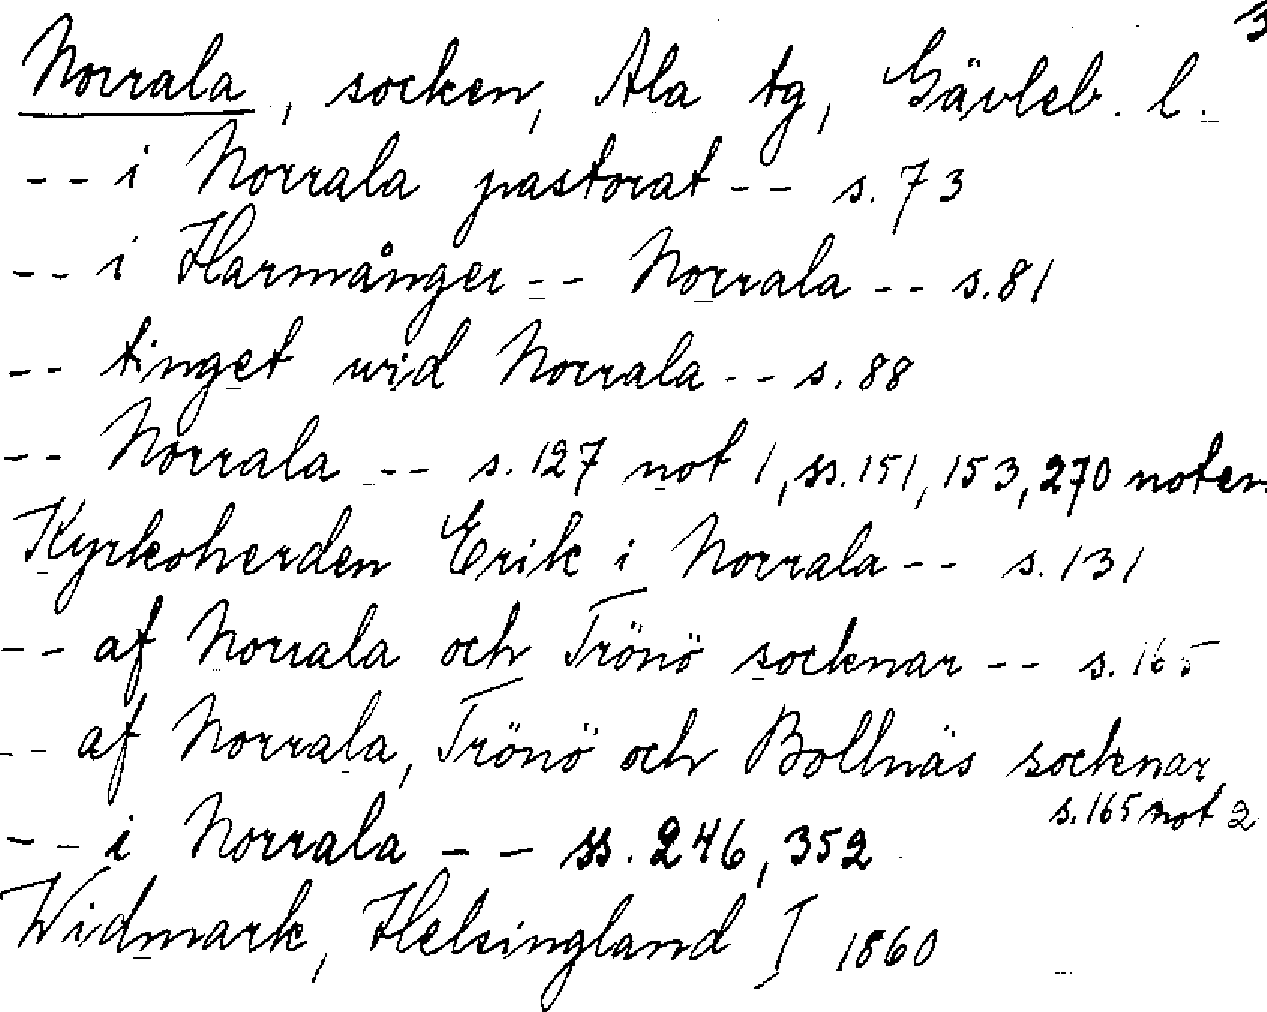 3
Norrala, socken, Ala tg, Gävleb. l.
-- i Norrala pastorat -- s. 73
-- i Harmånger -- Norrala -- s. 81
-- tinget wid Norrala -- s. 88
-- Norrala -- s. 127 not 1, ss. 151, 153, 270 noten
Kyrkoherden Erik i Norrala -- s. 131
-- af Norrala och Trönö socknar -- s. 165
-- af Norrala, Trönö och Bollnäs socknar
s. 165 not 2
-- i Norrala -- ss. 246, 352
Widmark, Helsingland I 1860